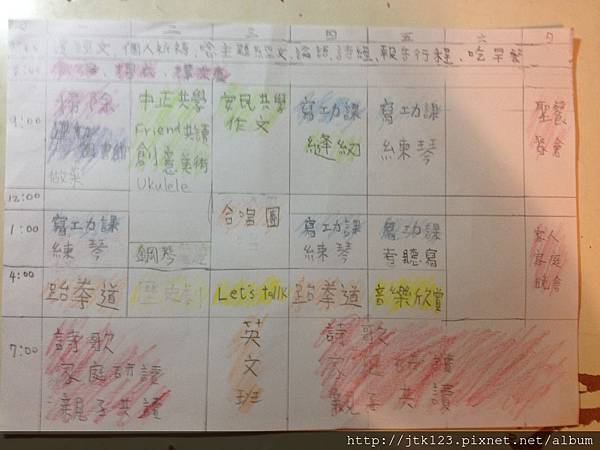 二 三 四 五 六 日
個人祈禱、唸主題經文、論語、詩經、報告行程、吃早餐
8:00
9:00
掃除
做菜
中正共學
Friend共讀
創意美術
Ukulele
安民共學
作文
寫功課
縫紉
寫功課
練琴
聖餐
聚會
12:00
1:00
寫功課
練琴
鋼琴
合唱團
寫功課
練琴
寫功課
考聽寫
家人
家庭
聚會
4:00
跆拳道
歷史
Let's talk
跆拳道
音樂欣賞
7:00
詩歌
家庭研讀
親子共讀
英
文
班
詩歌
家庭研讀
親子共讀
http://jtk123.pixnet.net/album